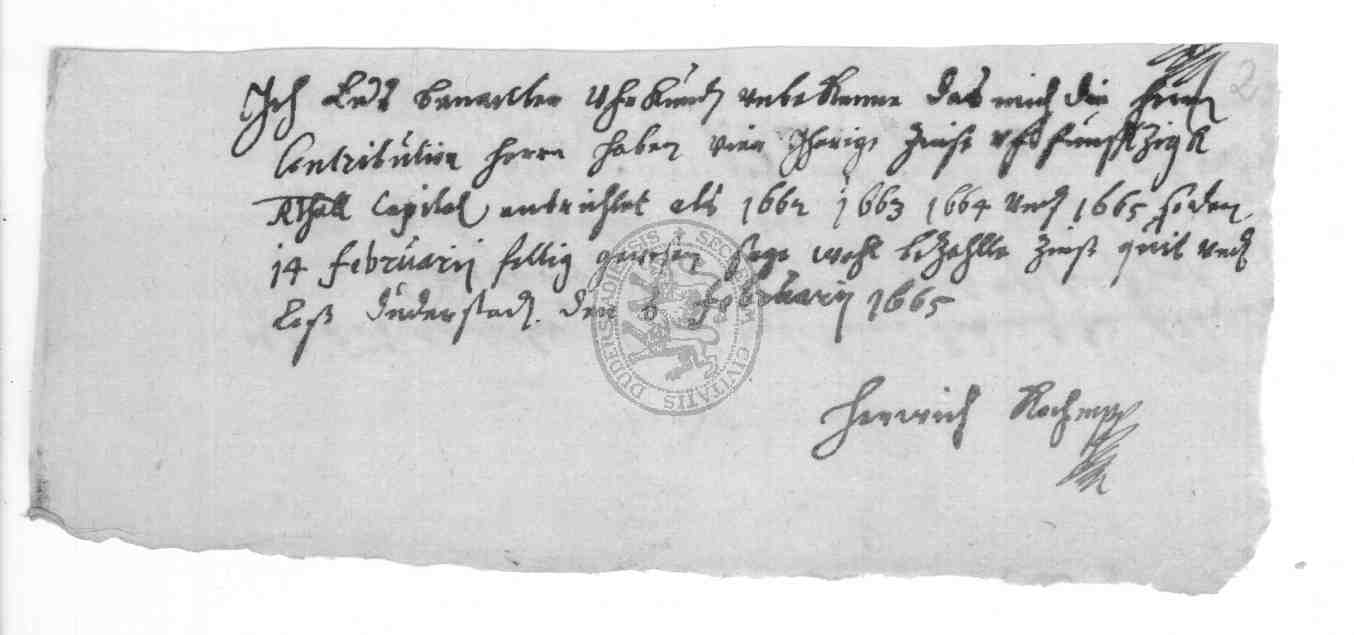 Ich Ends benandter Uhrkundt undt bekenne das mich die herrn
Contribution herrn haben vier Jherige Zinse uff funfftzigk
Rthall Capital entrichtet als 1662 1663 1664 und 1665 so den
14 februarij fellig gewesen sage wohl bezahlte Zinse quit und
loß Duderstadt den 8 february 1665
Henrich
2
SECRETUM CIVITATIS DUDERSTADIENSIS